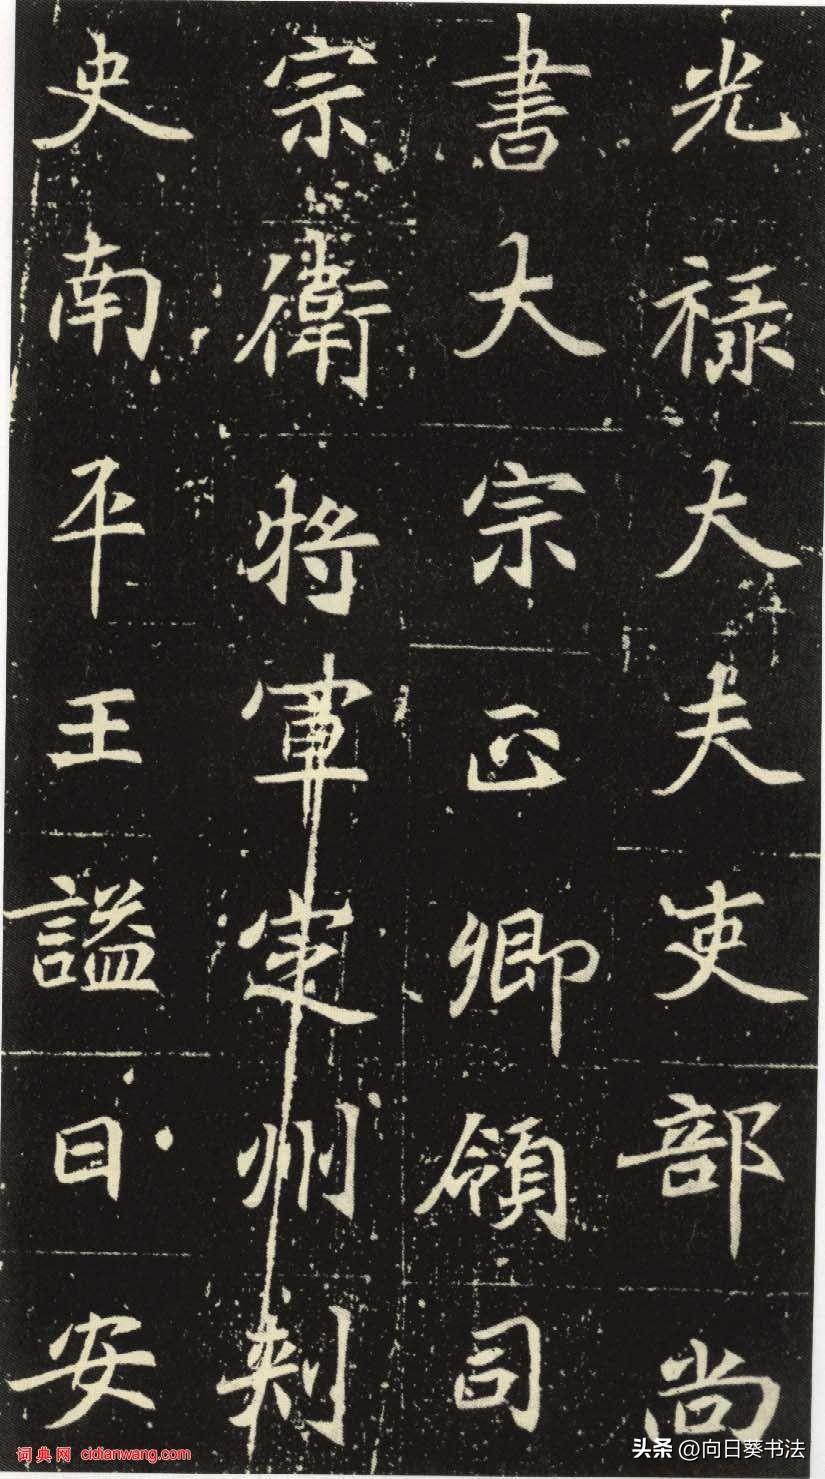 光禄大夫吏部尚
書大宗正卿領司
宗衛將軍定州刺
史南平王謚曰安
词典网 cidianwang.com
头条 @向日葵书法